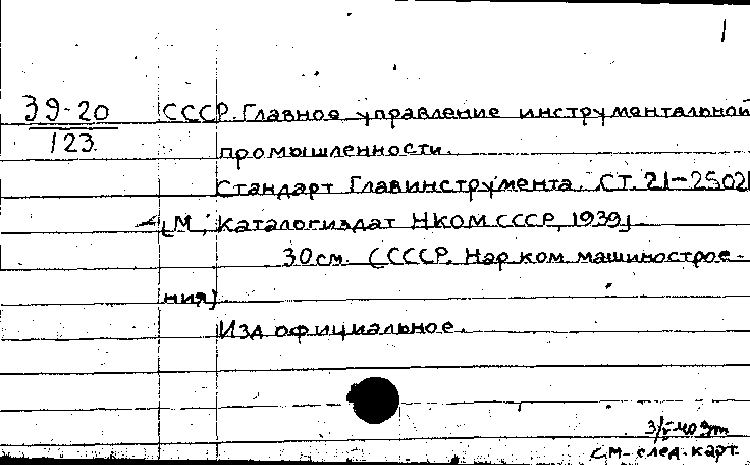 1
39-20
123
СССР. Главное управление инструментальной
промышленности.
Стандарт Главинструмента. СТ. 21-2502
[М, Каталогиздат НКОМ СССР, 1939]
30 см. (СССР. Нар ком. машинострое-
ния)
Изд официальное.
см- след. карт.